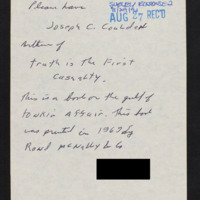 Please have
AUG 27 REC'D
Joseph C. Goulden
Author of
truth is the First
Casualty.
This is a book on the gulf of
TONKIN AFFAIR. This book
was printed in 1969 by
Rand McNally & Co